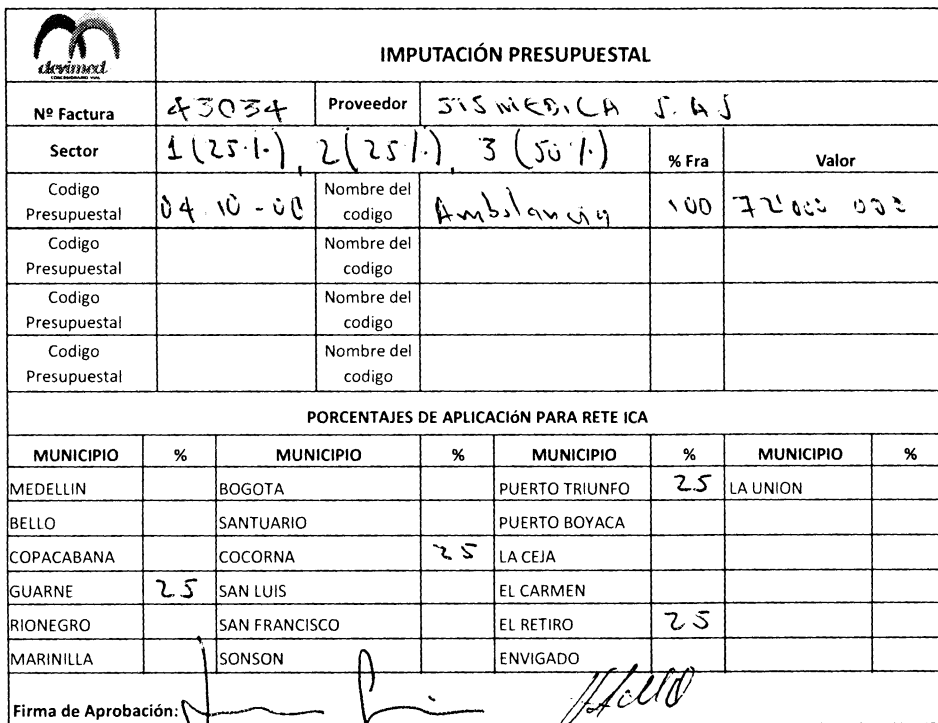 devimed
IMPUTACIÓN PRESUPUESTAL
Nº Factura 43034 Proveedor SISMEDICA S.A.S
Sector 1 (25%), 2 (25%), 3 (50%) % Fra Valor
Codigo Presupuestal 04.10-00 Nombre del codigo Ambulancia 100 72'000 000
Codigo Presupuestal Nombre del codigo
Codigo Presupuestal Nombre del codigo
Codigo Presupuestal Nombre del codigo
PORCENTAJES DE APLICACIÓN PARA RETE ICA
MUNICIPIO % MUNICIPIO % MUNICIPIO % MUNICIPIO %
MEDELLIN BOGOTA PUERTO TRIUNFO 25 LA UNION
BELLO SANTUARIO PUERTO BOYACA
COPACABANA COCORNA 25 LA CEJA
GUARNE 25 SAN LUIS EL CARMEN
RIONEGRO SAN FRANCISCO EL RETIRO 25
MARINILLA SONSON ENVIGADO
Firma de Aprobación: